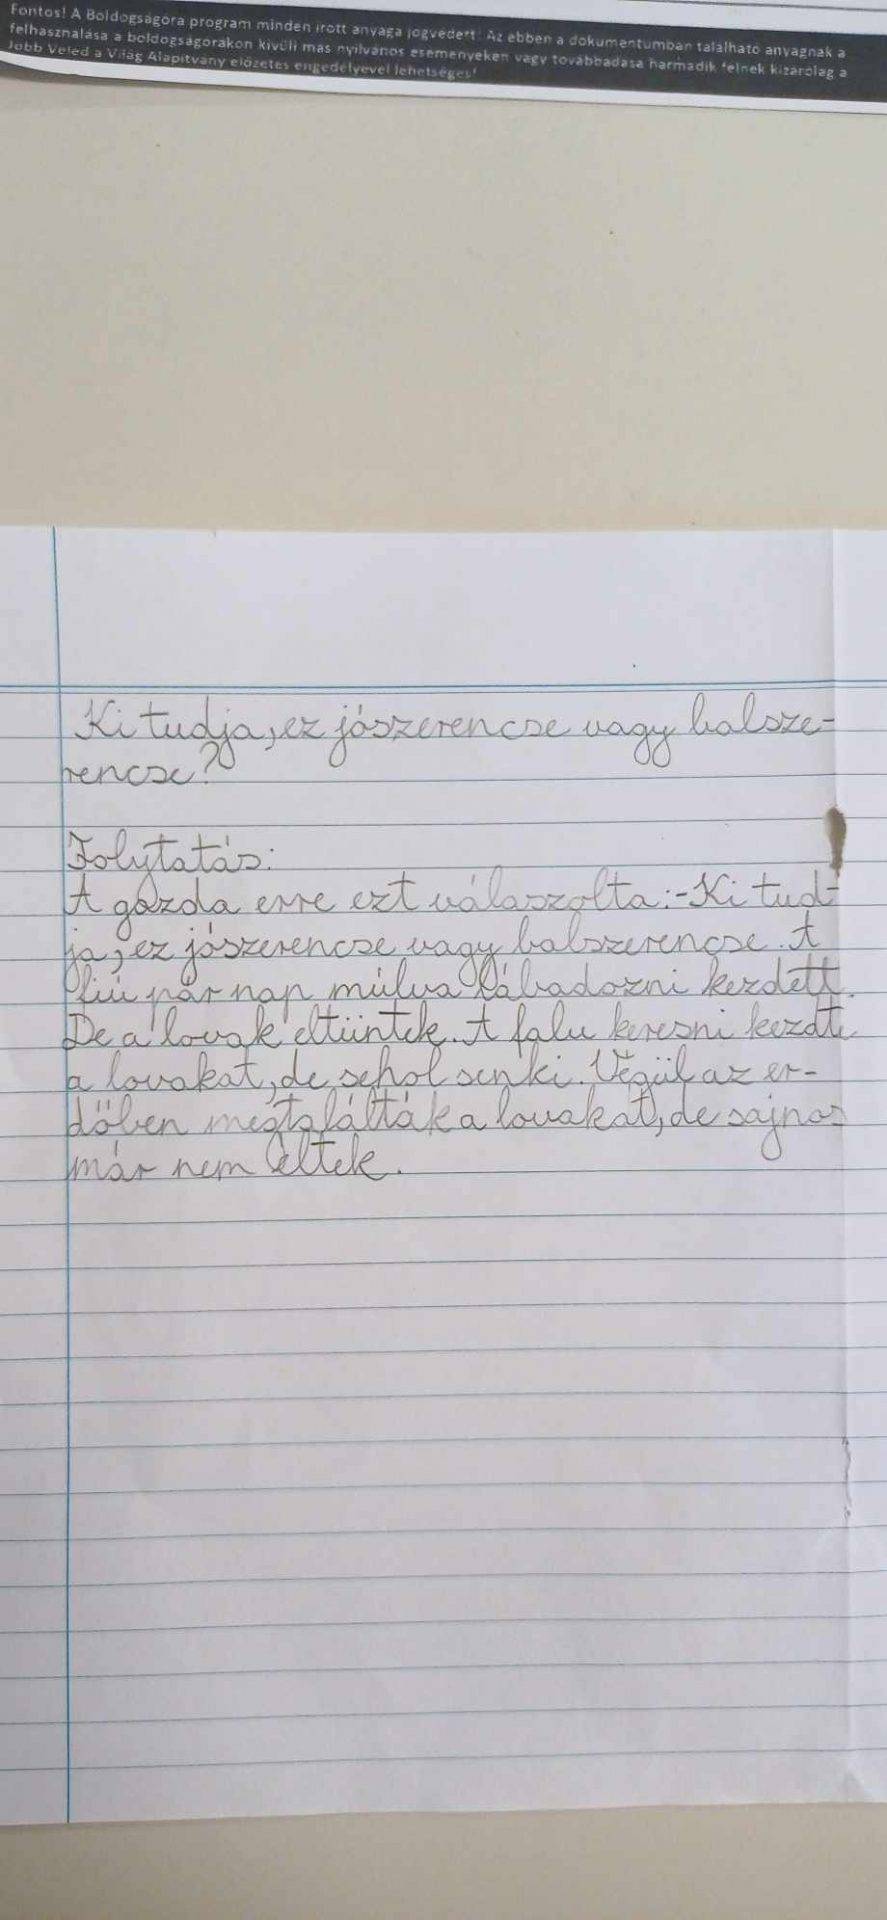 Fontos! A Boldogságóra program minden írott anyaga jogvédett! Az ebben a dokumentumban található anyagnak a
felhasználása a boldogságórákon kívüli más nyilvános eseményeken vagy továbbadása harmadik félnek kizárólag a
Jobb Veled a Világ Alapítvány előzetes engedélyével lehetséges!
Ki tudja, ez jószerencse vagy balsze-
rencse?
Folytatás:
A gazda erre ezt válaszolta:-Ki tud-
ja, ez jószerencse vagy balszerencse. A
fiú pár nap múlva lábadozni kezdett.
De a lovak eltüntek. A falu keresni kezdte
a lovakat, de sehol senki. Végül az er-
döben megtalálták a lovakat, de sajnos
már nem éltek.